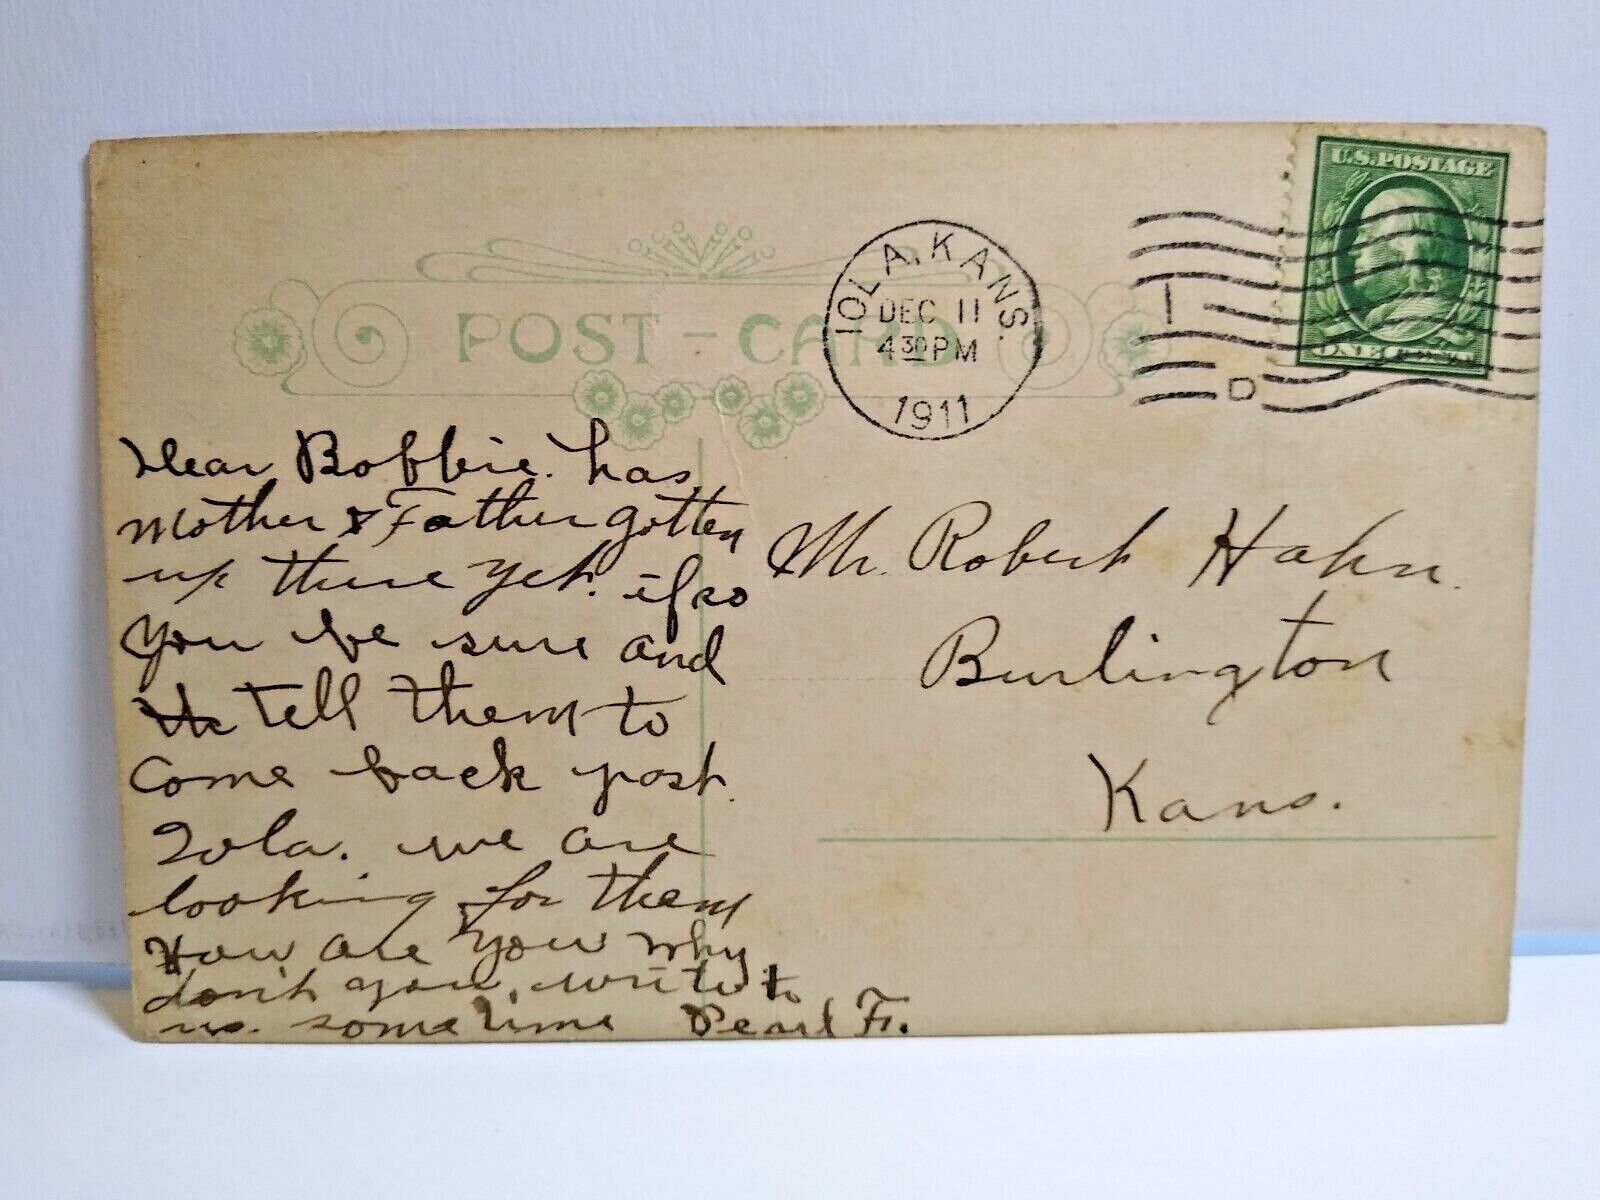 U.S. POSTAGE
ONE CENT
IOLA, KANS.
DEC 11
4 30 PM
1911
1
D
POST-CARD
Dear Bobbie. has
Mother & Father gotten
up there yet. if so
You be sure and
tell them to
Come back post.
Iola. we are
looking for them
How are you why
don't you, write to
us. sometime Pearl F.
Mr. Robert Hahn.
Burlington
Kans.